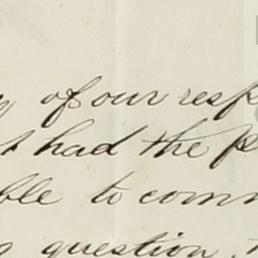 of our resp
had the p
ble to com
question,